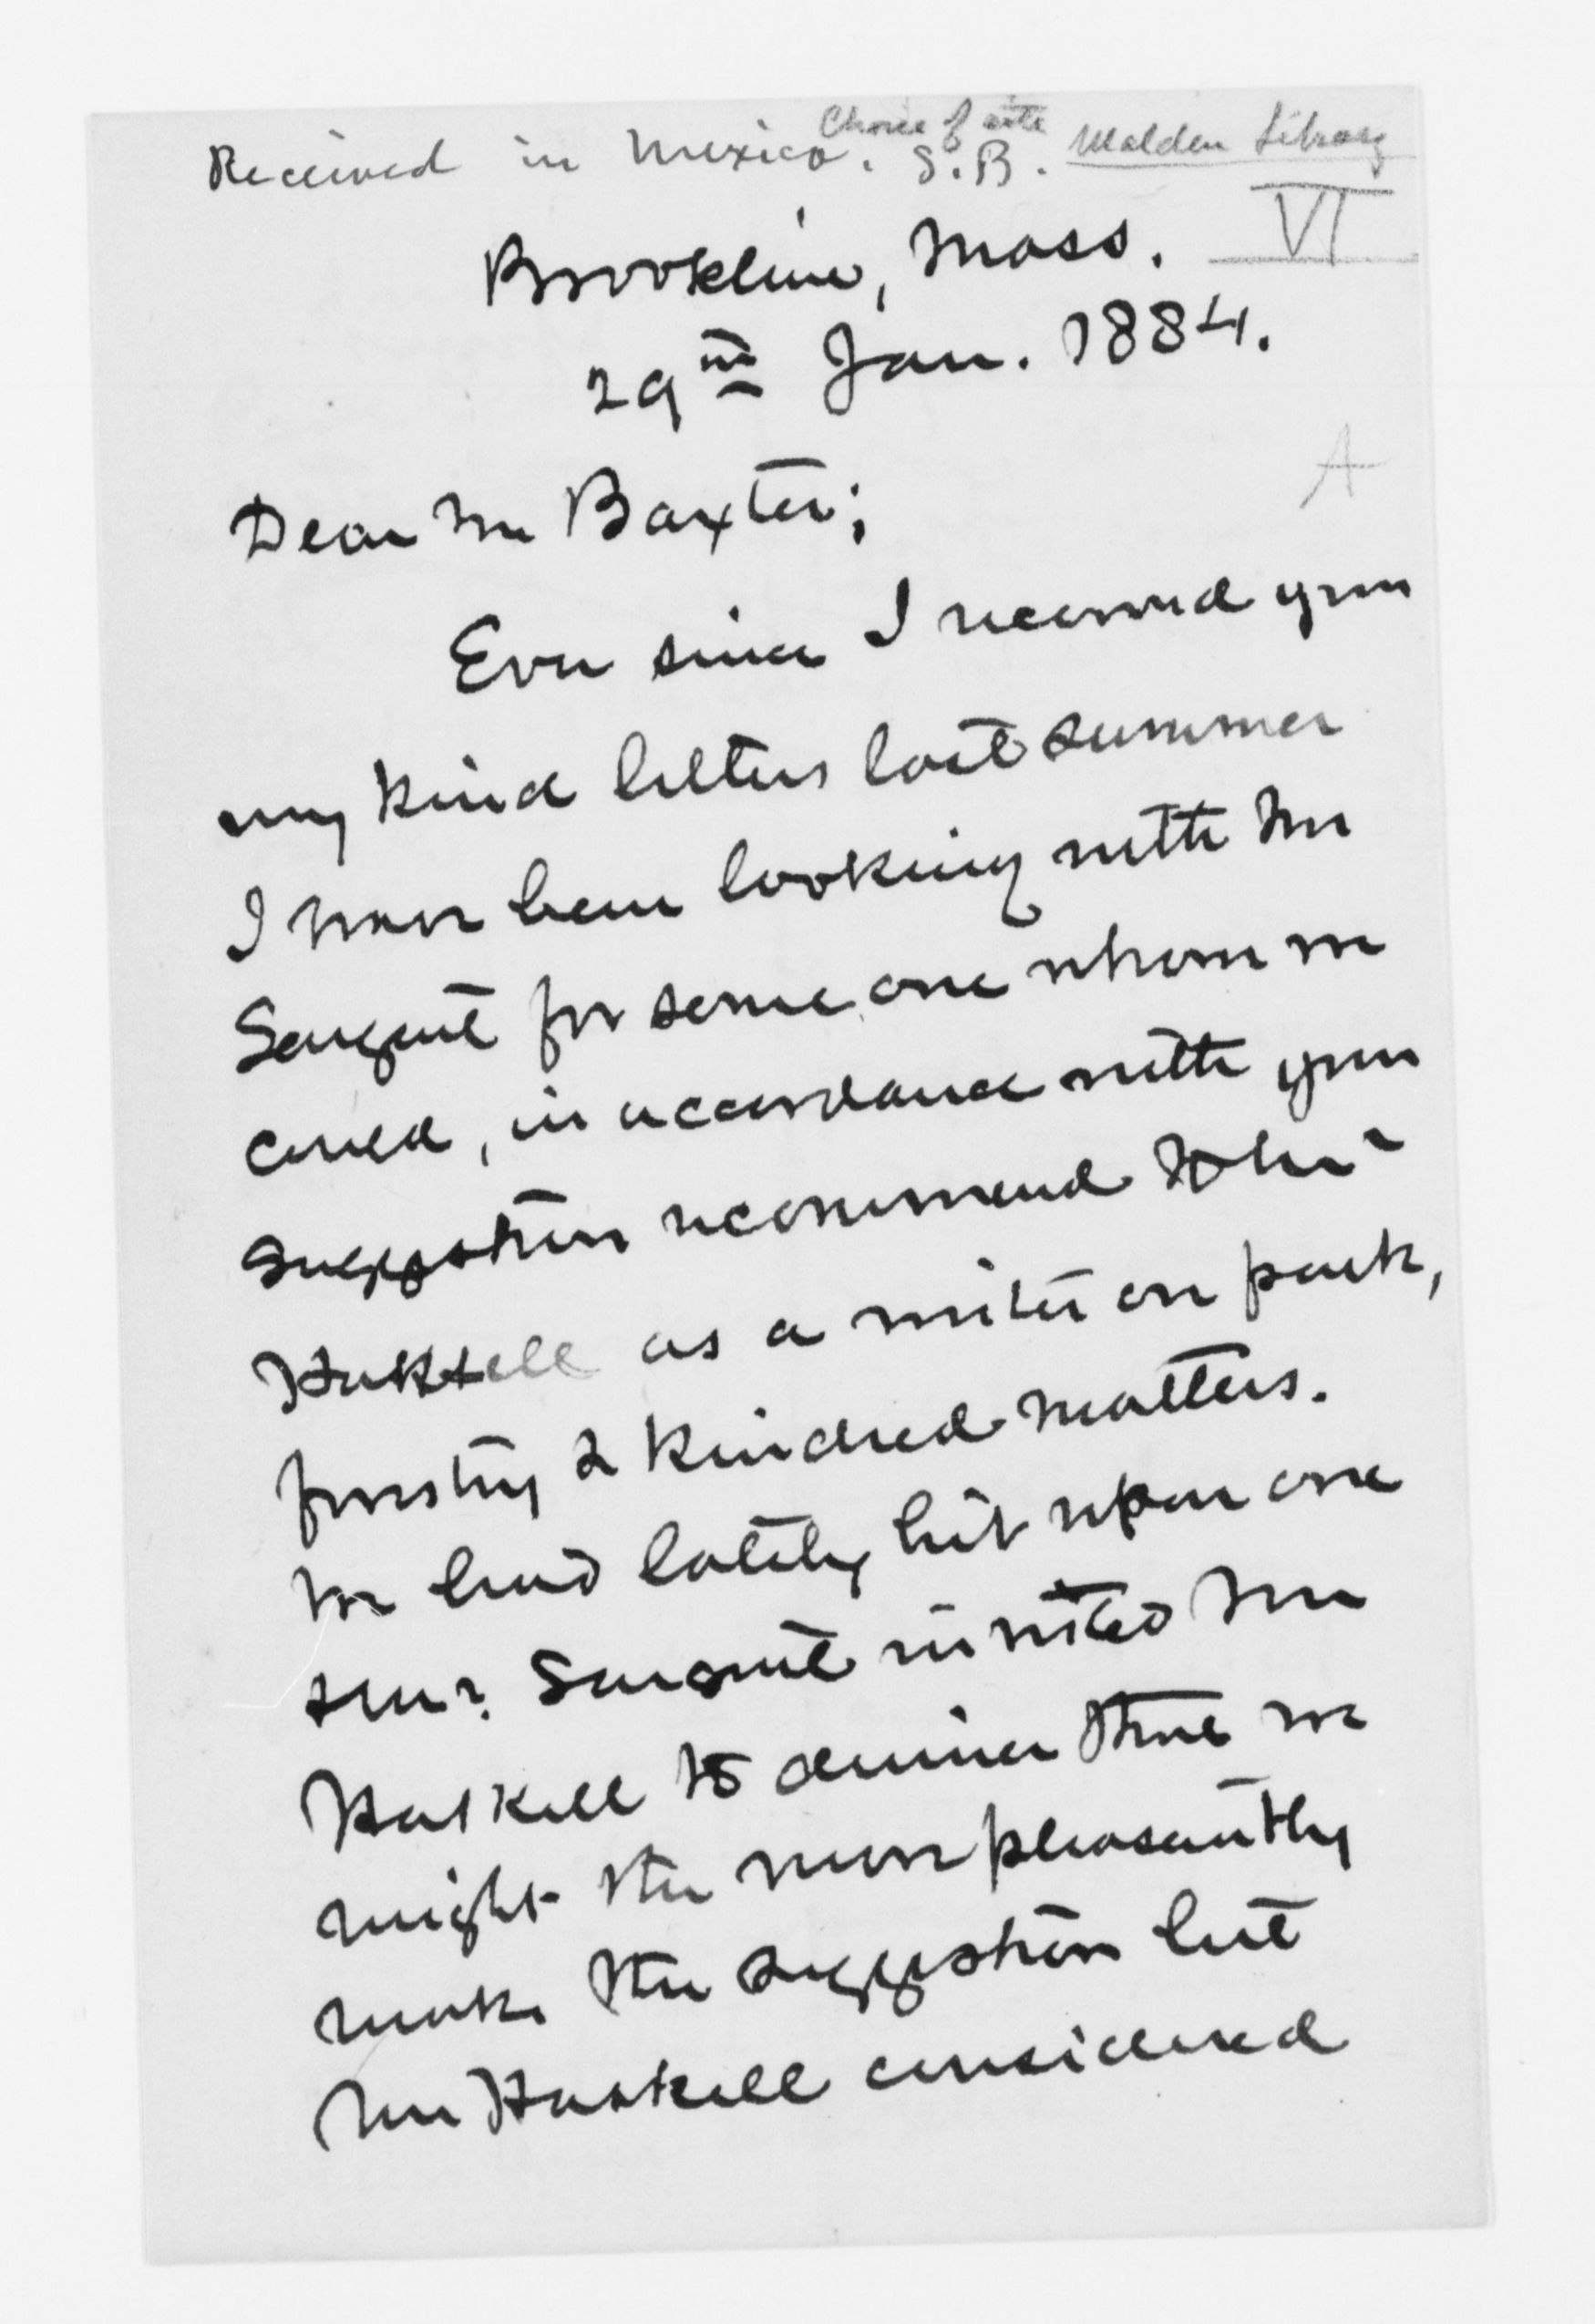 Choice of site
Received in Mexico. S.B. Malden Library
VI
Brookline, Mass.
29th Jan. 1884.
A
Dear Mr Baxter;
Ever since I received your
very kind letters last summer
I have been looking with Mr
Sargent for some one whom we
could, in accordance with your
suggestion recommend to Mr
Haskell as a writer on park,
forestry & kindred matters.
We had lately hit upon one
& Mr Sargent invited Mr
Haskell to dinner that we
might the more pleasantly
make the suggestion but
Mr Haskell considered